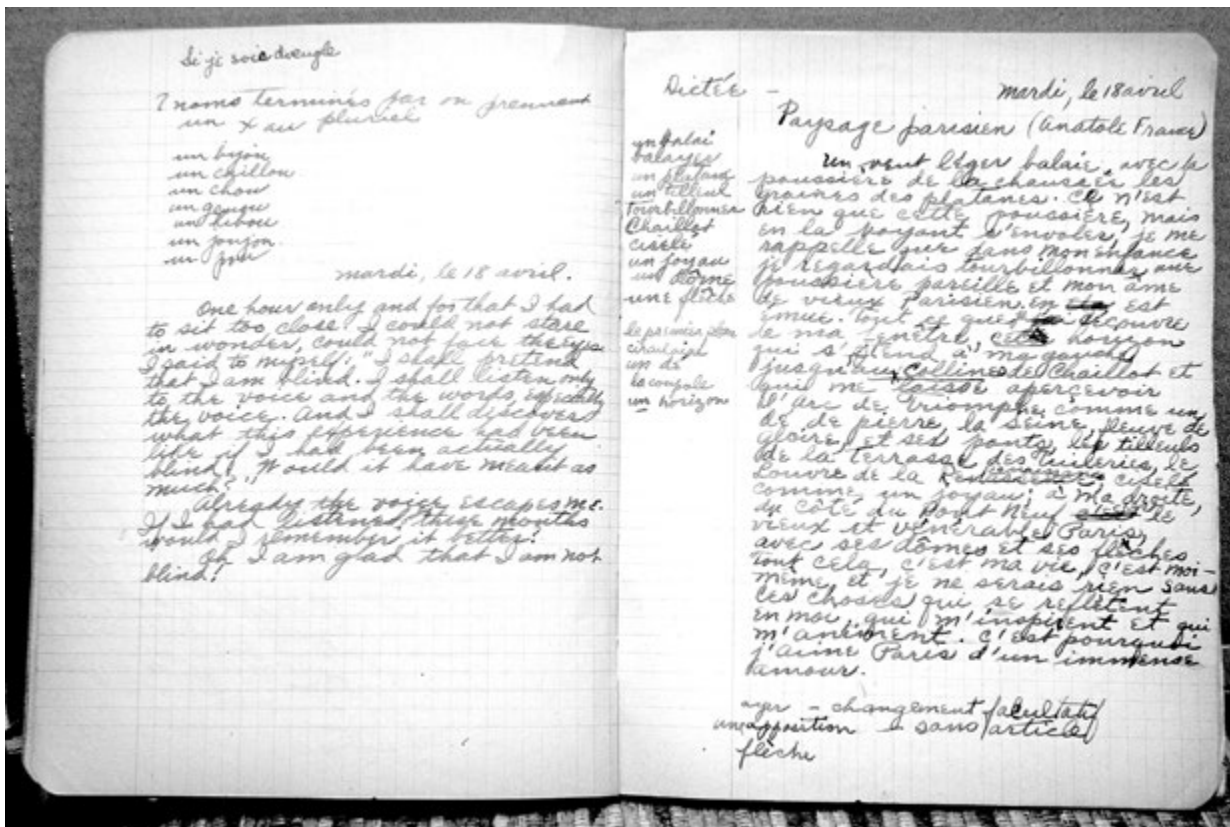 Si je sois aveugle
7 noms terminés par ou prennent
un x au pluriel
un bijou
un caillou
un chou
un genou
un hibou
un joujou
un pou
mardi, le 18 avril.
One hour only and for that I had
to sit too close. I could not stare
in wonder, could not face the eyes.
I said to myself: "I shall pretend
that I am blind. I shall listen only
to the voice and the words, especially
the voice. And I shall discover
what this experience had been
like if I had been actually
blind! Would it have meant as
much?"
Already the voice escapes me.
If I had listened these months
would I remember it better?
Oh I am glad that I am not
blind!
Dictée -
mardi, le 18 avril
Paysage parisien (Anatole France)
un balai
balayer
un platane
un tilleul
tourbillonner
Chaillot
ciselé
un joyau
un dôme
une flèche
le premier plan
un dé
la coupole
un horizon
Un vent léger balaie, avec la
poussière de la chaussée les
graines des platanes. Ce n'est
rien que cette poussière, mais
en la voyant s'envoler, je me
rappelle que dans mon enfance
je regardais tourbillonner une
poussière pareille et mon âme
de vieux Parisien en est
émue. Tout ce que je découvre
de ma fenêtre, cet horizon
qui s'étend à ma gauche
jusqu'au collines de Chaillot et
qui me laisse apercevoir
l'Arc de Triomphe comme un
dé de pierre, la Seine, fleuve de
gloire, et ses ponts, les tilleuls
de la terrasse des Tuileries, le
Louvre de la Renaissance ciselé
comme un joyau; à ma droite,
du côté du Pont Neuf le
vieux et vénérable Paris,
avec ses dômes et ses flèches.
Tout cela, c'est ma vie, c'est moi-
même, et je ne serais rien sans
ces choses qui se reflètent
en moi, qui m'inspirent et qui
m'animent. C'est pourquoi
j'aime Paris d'un immense
amour.
ayer - changement facultatif
une apposition - sans article
flèche